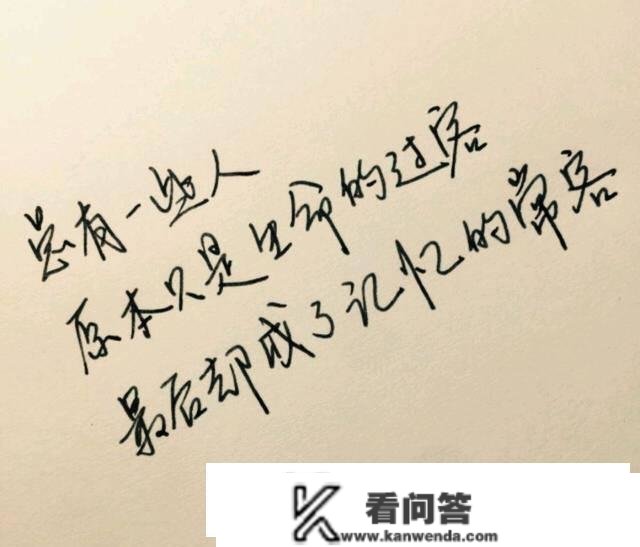 总有一些人
原本只是生命的过客
最后却成了记忆的常客
看问答
www.kanwenda.com